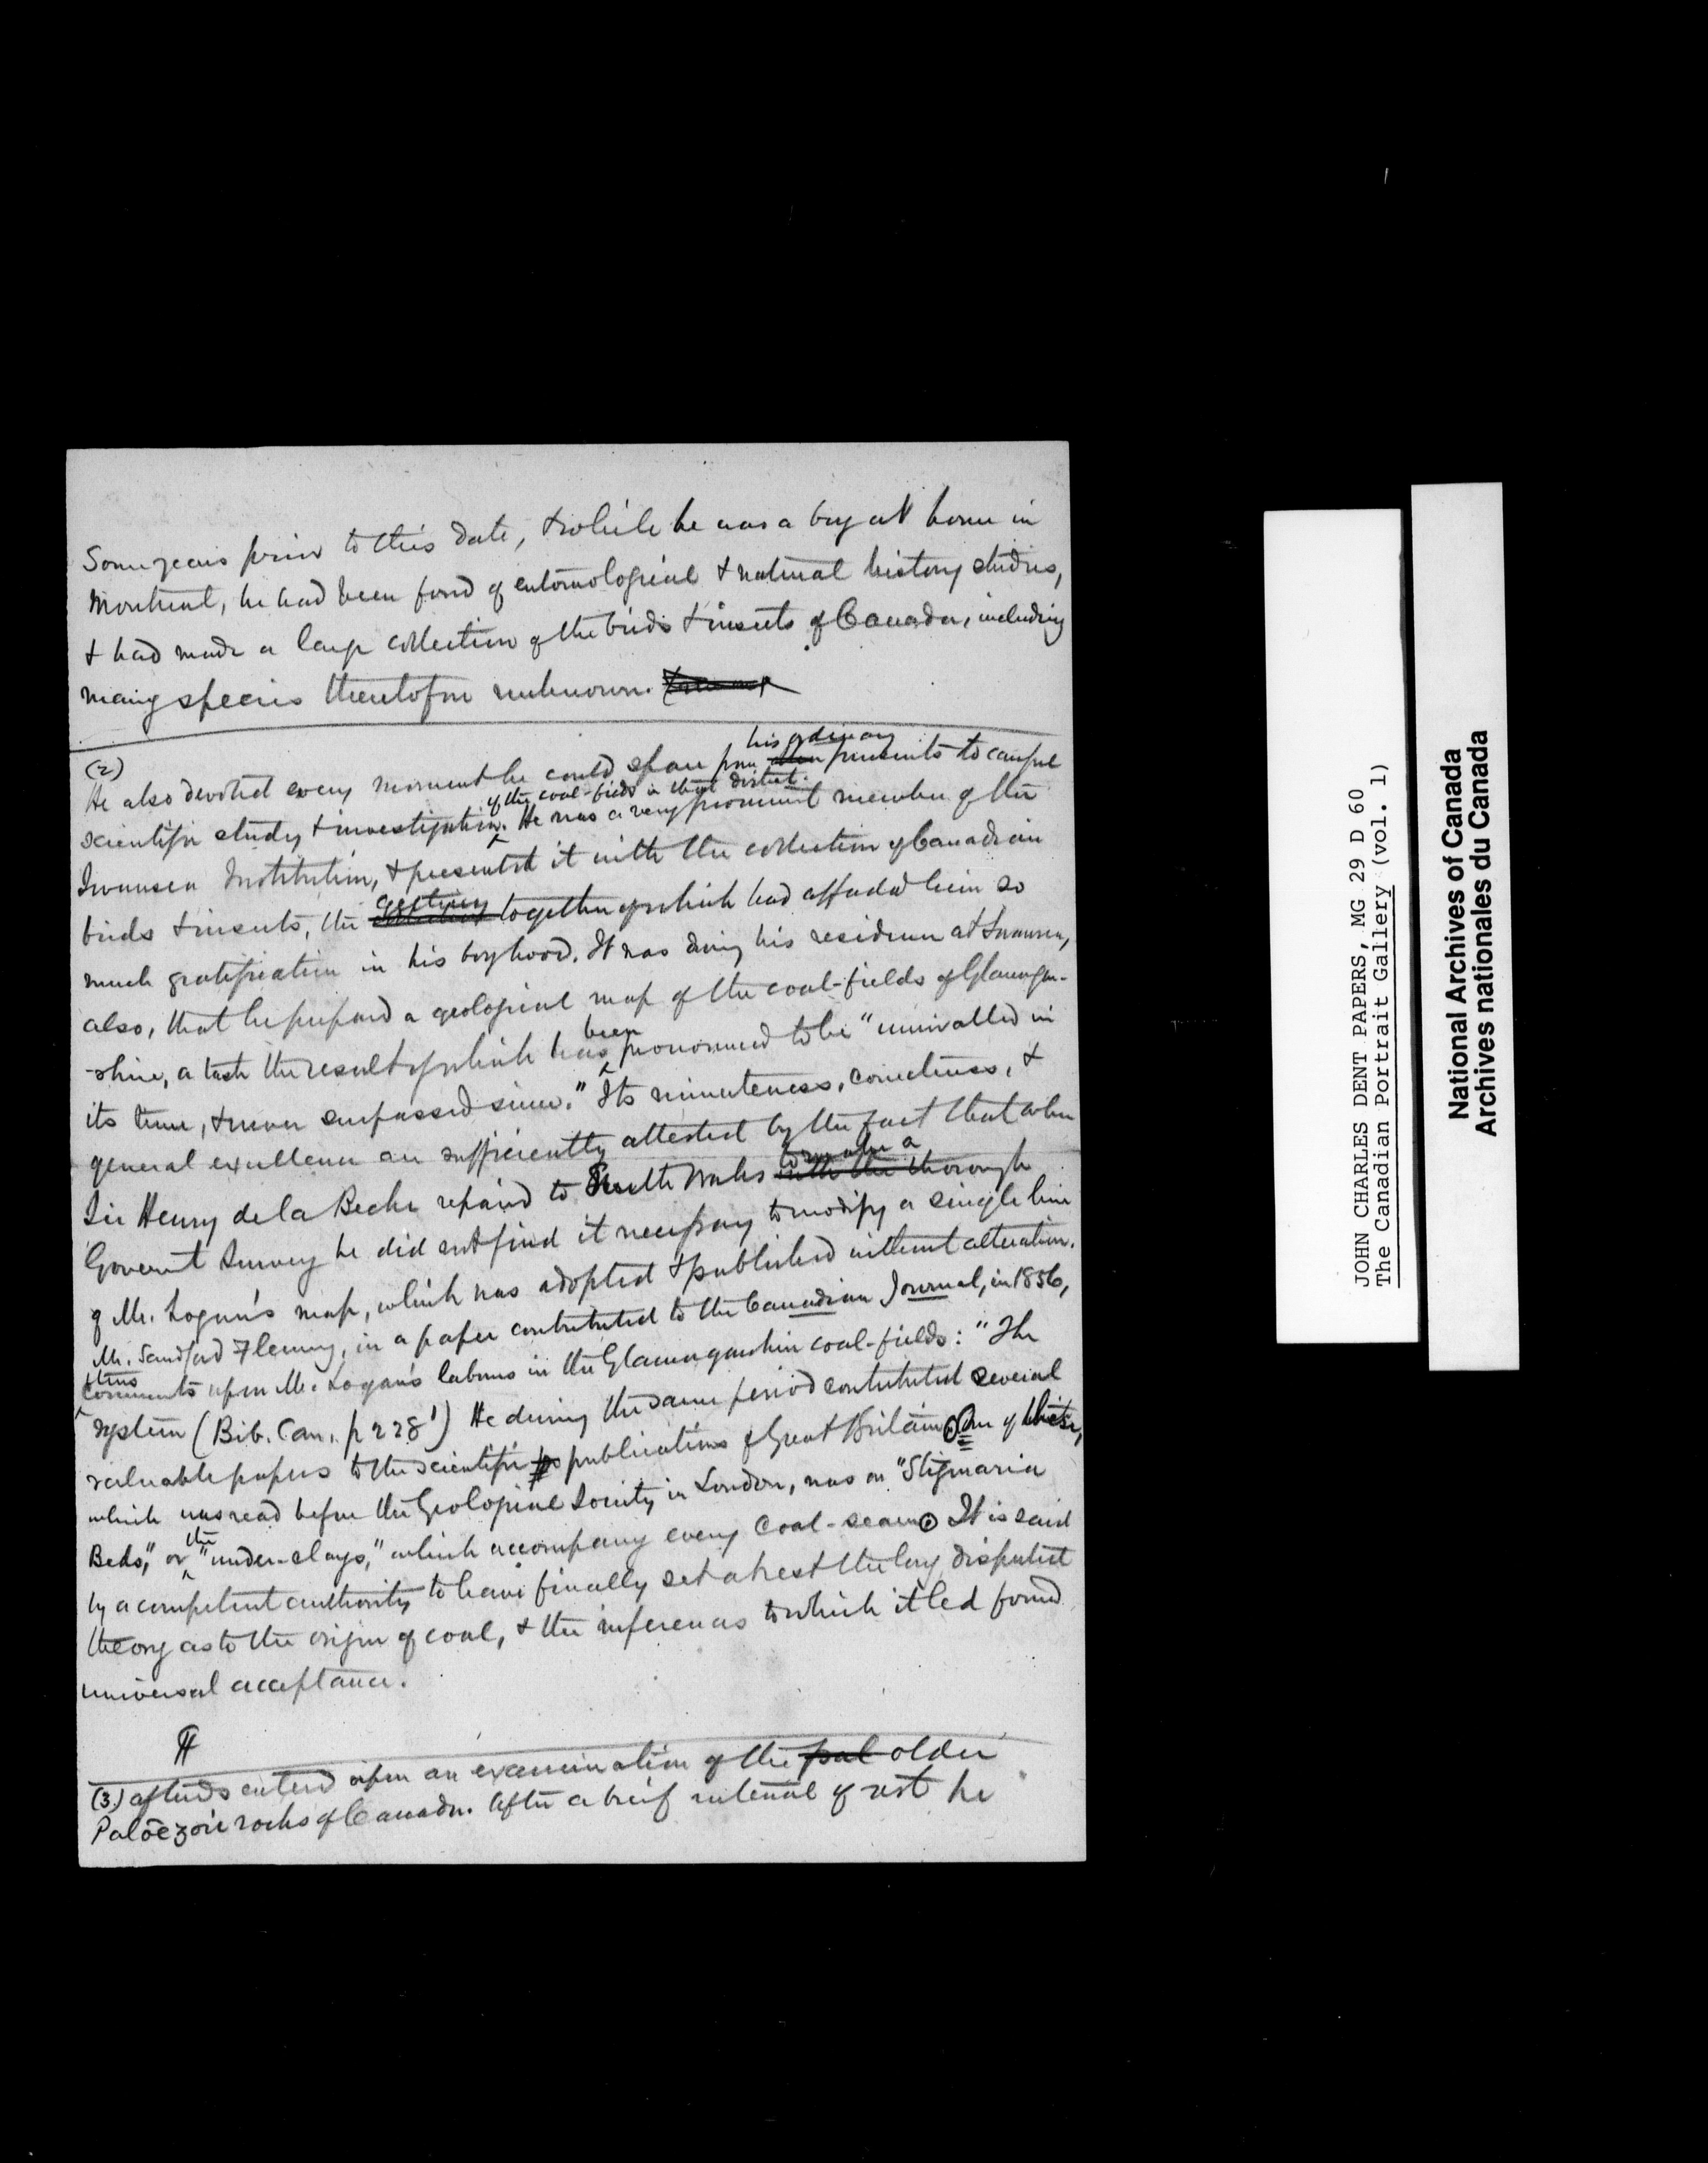 Some years prior to this date, & while he was a boy at home in
Montreal, he had been fond of entomological & natural history studies,
& had made a large collection of the birds & insects of Canada, including
many species theretofore unknown.
(2)
his ordinary
He also devoted every moment he could spare from pursuits to careful
of the coal-fields in that district.
scientific study & investigation. He was a very prominent member of the
Swansea Institution, & presented it with the collection of Canadian
getting
birds & insects, the together of which had afforded him so
much gratification in his boyhood. It was during his residence at Swansea,
also, that he prepared a geological map of the coal-fields of Glamorgan-
been
-shire, a task the result of which has pronounced to be "unrivalled in
its time, & never surpassed since." Its minuteness, correctness, &
general excellence are sufficiently attested by the fact that when
to make a
Sir Henry de la Beche repaired to South Wales with the thorough
Governt Survey he did not find it necessary to modify a single line
of Mr. Logan's map, which was adopted & published without alteration.
Mr. Sandford Fleming, in a paper contributed to the Canadian Journal, in 1856,
thus
comments upon Mr. Logan's labours in the Glamorganshire coal-fields: "The
system (Bib. Can. p 228') He during the same period contributed several
valuable papers to the scientific publications of Great Britain. One of these,
which was read before the Geological Society in London, was on "Stigmaria
the
Beds," or "under-clays," which accompany every coal-seam. It is said
by a competent authority to have finally set at rest the long disputed
theory as to the origin of coal, & the inferences to which it led found
universal acceptance.
(3) afterds entered upon an examination of the pal older
Palöezoic rocks of Canada. After a brief interval of rest he
JOHN CHARLES DENT PAPERS, MG 29 D 60
The Canadian Portrait Gallery (vol. 1)
National Archives of Canada
Archives nationales du Canada